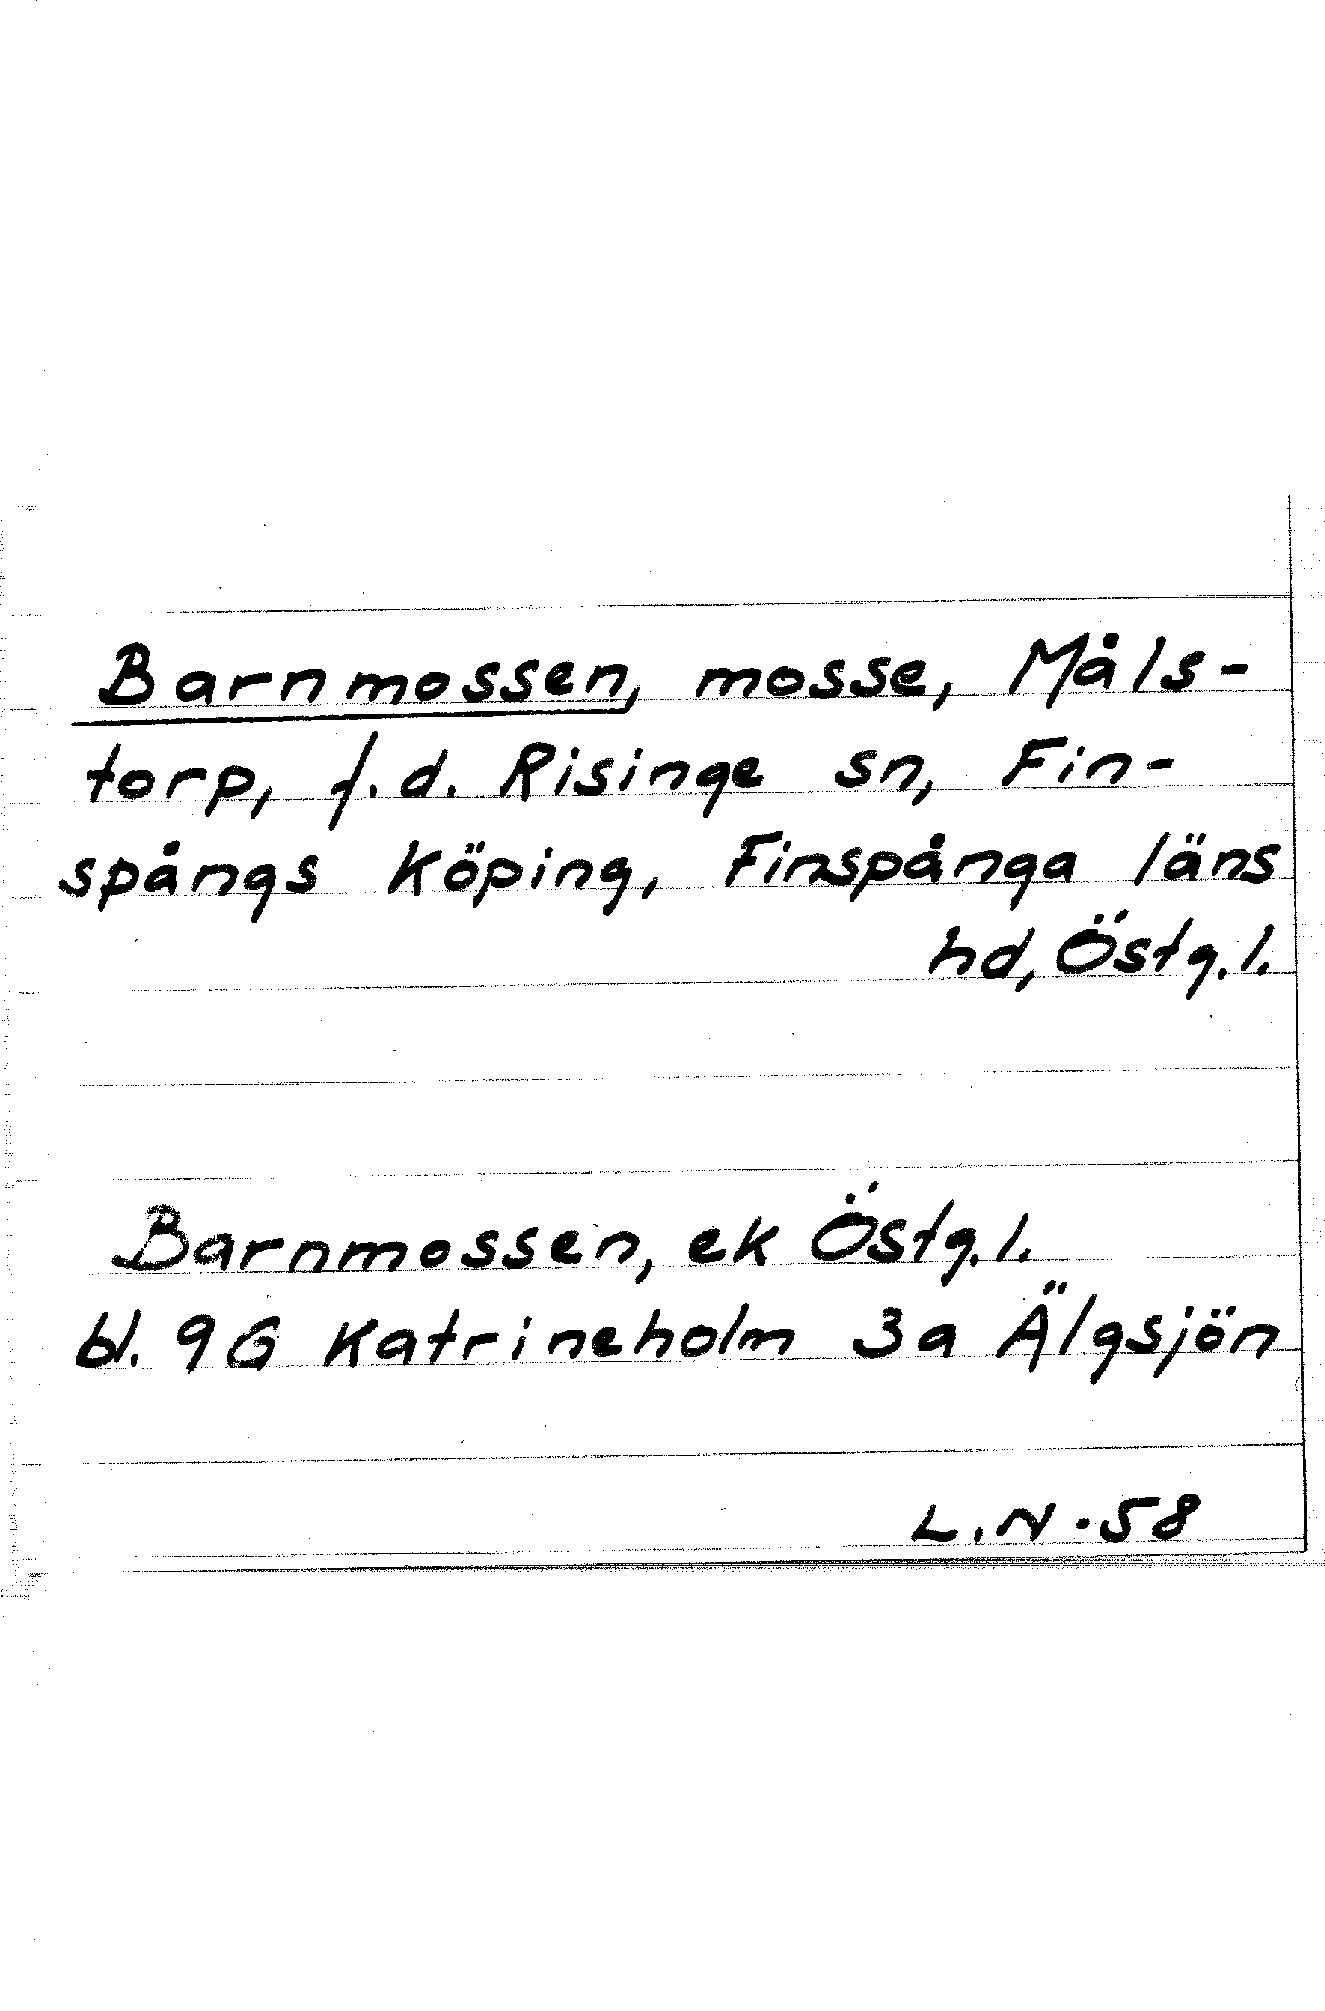 Barnmossen, mosse, Måls-
torp, f.d. Risinge sn, Fin-
spångs köping, Finspånga läns
hd, Östg.l.
Barnmossen, ek Östg.l.
bl. 9G Katrineholm 3a Älgsjön
L.N.58